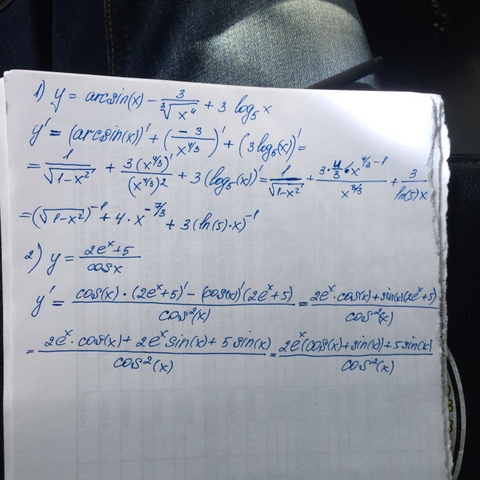 1) y = arcsin(x) - 3/∛(x⁴) + 3 log₅x
y' = (arcsin(x))' + (-3/x^(4/3))' + (3log₅(x))' =
= 1/√(1-x²) + 3(x^(4/3))'/(x^(4/3))² + 3(log₅(x))' = 1/√(1-x²) + 3·4/3·x^(4/3-1)/x^(8/3) + 3/ln(5)x
= (√(1-x²))⁻¹ + 4·x^(-7/3) + 3(ln(5)·x)⁻¹
2) y = (2eˣ+5)/cosx
y' = (cos(x)·(2eˣ+5)' - (cos(x))'(2eˣ+5))/cos²(x) = (2eˣ·cos(x)+sin(x)(2eˣ+5))/cos²(x)
= (2eˣ·cos(x)+2eˣsin(x)+5sin(x))/cos²(x) = (2eˣ(cos(x)+sin(x))+5sin(x))/cos²(x)